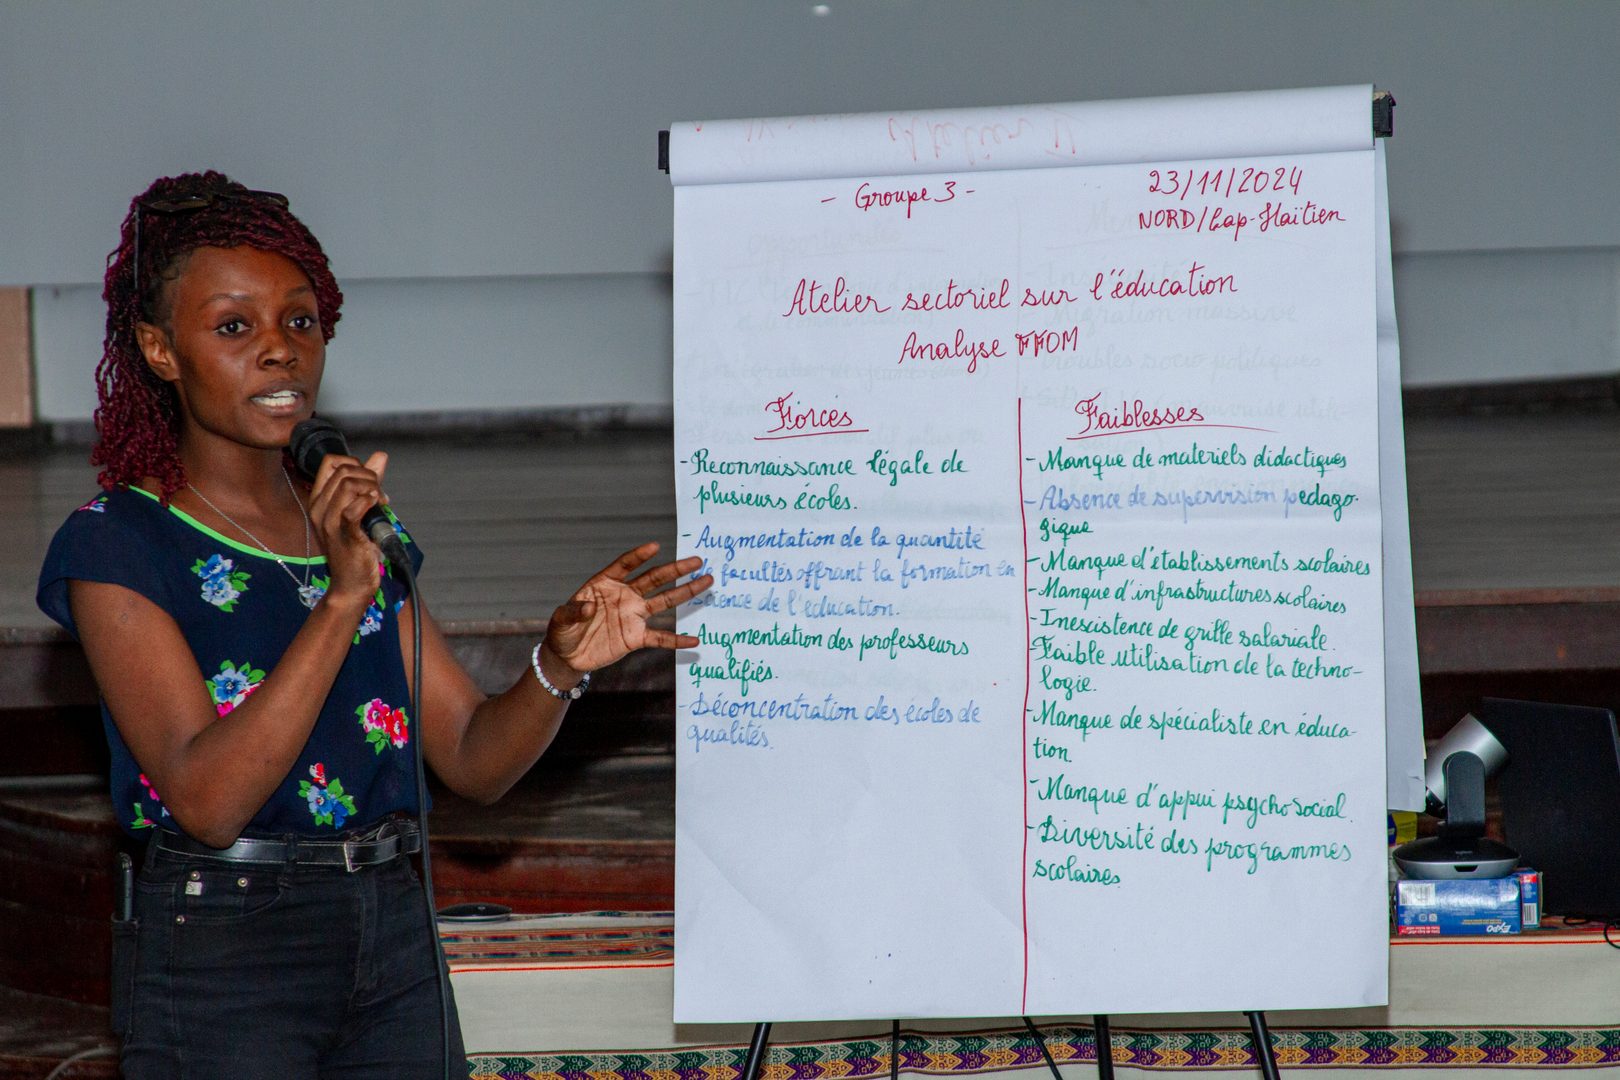 - Groupe 3 -
23/11/2024
NORD/Cap-Haïtien
Atelier sectoriel sur l'éducation
Analyse FFOM
Forces
- Reconnaissance légale de
plusieurs écoles.
- Augmentation de la quantité
de facultés offrant la formation en
science de l'éducation.
- Augmentation des professeurs
qualifiés.
- Déconcentration des écoles de
qualités.
Faiblesses
- Manque de materiels didactiques
- Absence de supervision pedago-
gique
- Manque d'établissements scolaires
- Manque d'infrastructures scolaires
- Inexistence de grille salariale.
- Faible utilisation de la techno-
logie.
- Manque de spécialiste en éduca-
tion.
- Manque d'appui psychosocial.
- Diversité des programmes
scolaires
Atelier IV
EXPO